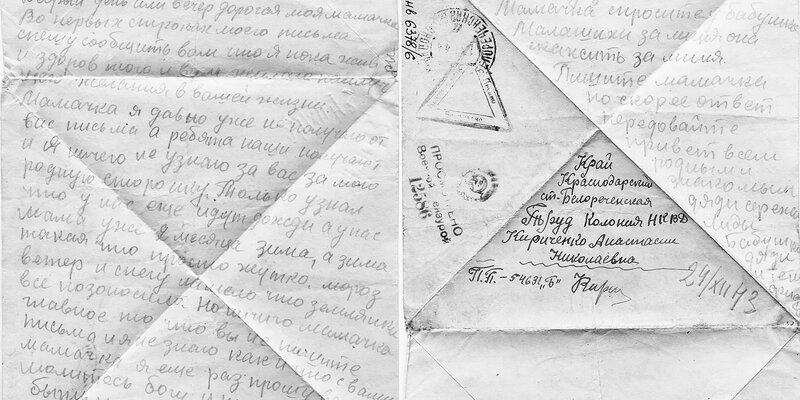 день или вечер дорогая моя мамачка
Во первых строках моего письма
спешу сообщить вам что я пока жив
и здоров того и вам желаю
желания в вашей жизни
Мамачка я давно уже не получаю от
вас письма а ребята наши получают
и я ничего не узнаю за вас за мою
родную сторону. Только узнал
что у вас еще идут дожди а у нас
мама уже 2 месяца зима, а зима
такая что просто жутко. мороз
ветер и снегу что землянки
все позоносила. Но ничего мамачка
главное то что вы не пишите
письма и я не знаю как что с вами
мамачка я еще раз прошу
молитесь богу и
Мамачка спросите у бабушки
за миня она
скажить за миня.
Пишите мамачка
по скорее ответ
передовайте
привет всем
родным и
знакомым
дяди сережи
Лиды
бабушки
дяди
№ 6378/6
ПРОСМОТРЕНО
Военной Цензурой
12586
Край
Краснодарский
ст-Белореченская
Колония НКВД
Кириченко Анастасии
Николаевна
П.П.-54631 „Б"
24/XII 43